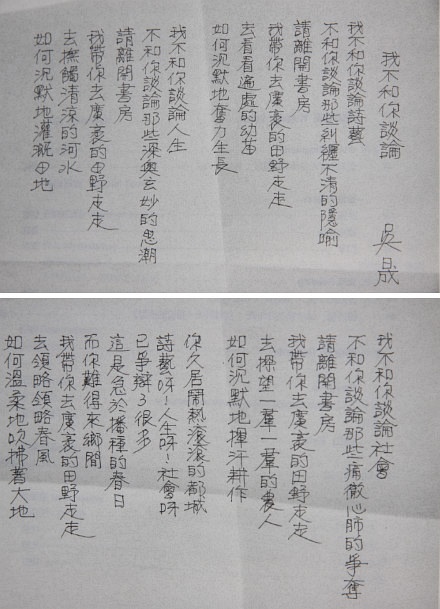 我不和你談論
吳晟
我不和你談論詩藝
不和你談論那些糾纏不清的隱喻
請離開書房
我帶你去廣袤的田野走走
去看看遍處的幼苗
如何沉默地奮力生長
我不和你談論人生
不和你談論那些深奧玄妙的思潮
請離開書房
我帶你去廣袤的田野走走
去撫觸清涼的河水
如何沉默地灌溉田地
我不和你談論社會
不和你談論那些痛徹心肺的爭奪
請離開書房
我帶你去廣袤的田野走走
去探望一羣一羣的農人
如何沉默地揮汗耕作
你久居鬧熱滾滾的都城
詩藝呀!人生呀!社會呀
已爭辯了很多
這是急於播種的春日
而你難得來鄉間
我帶你去廣袤的田野走走
去領略領略春風
如何溫柔地吹拂著大地